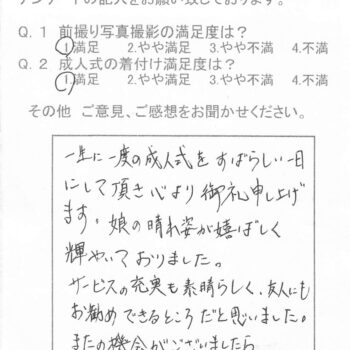 アンケートの記入をお願い致しております。
Q.1 前撮り写真撮影の満足度は？
1.満足 2.やや満足 3.やや不満 4.不満
Q.2 成人式の着付け満足度は？
1.満足 2.やや満足 3.やや不満 4.不満
その他 ご意見、ご感想をお聞かせください。
一生に一度の成人式をすばらしい一日
にして頂き心より御礼申し上げ
ます。娘の晴れ姿が嬉ばしく
輝やいておりました。
サービスの充実も素晴らしく、友人にも
お勧めできるところだと思いました。
またの機会がございましたら